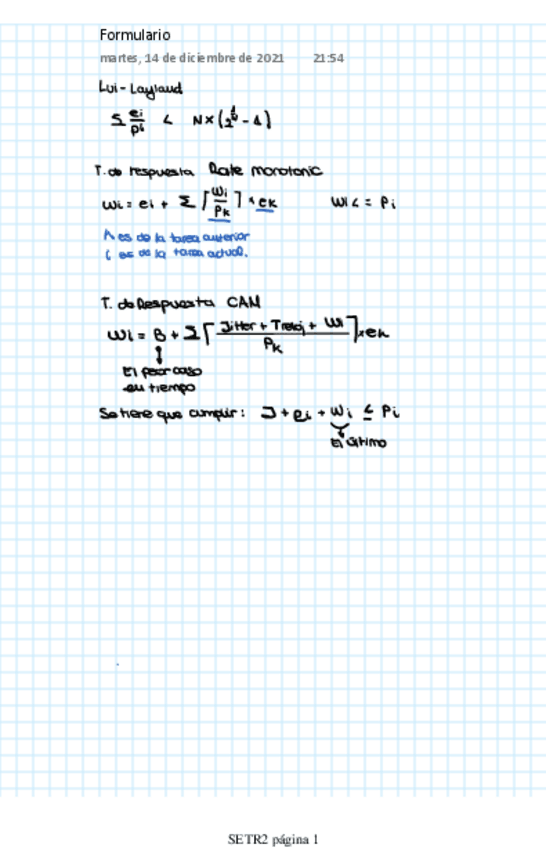 Formulario
martes, 14 de diciembre de 2021 21:54
Lui-Layland
Σ ei/pi < N×(2^(1/N) - 1)
T. de respuesta Rate monotonic
wi = ei + Σ ⌈wi/Pk⌉ * ek wi <= Pi
k es de la tarea anterior
i es de la tarea actual.
T. de Respuesta CAN
wi = B + Σ⌈(Jitter + Treloj + wi)/Pk⌉×ek
El peor caso
en tiempo
Se tiene que cumplir: J + ei + wi ≤ Pi
El último
SETR2 página 1